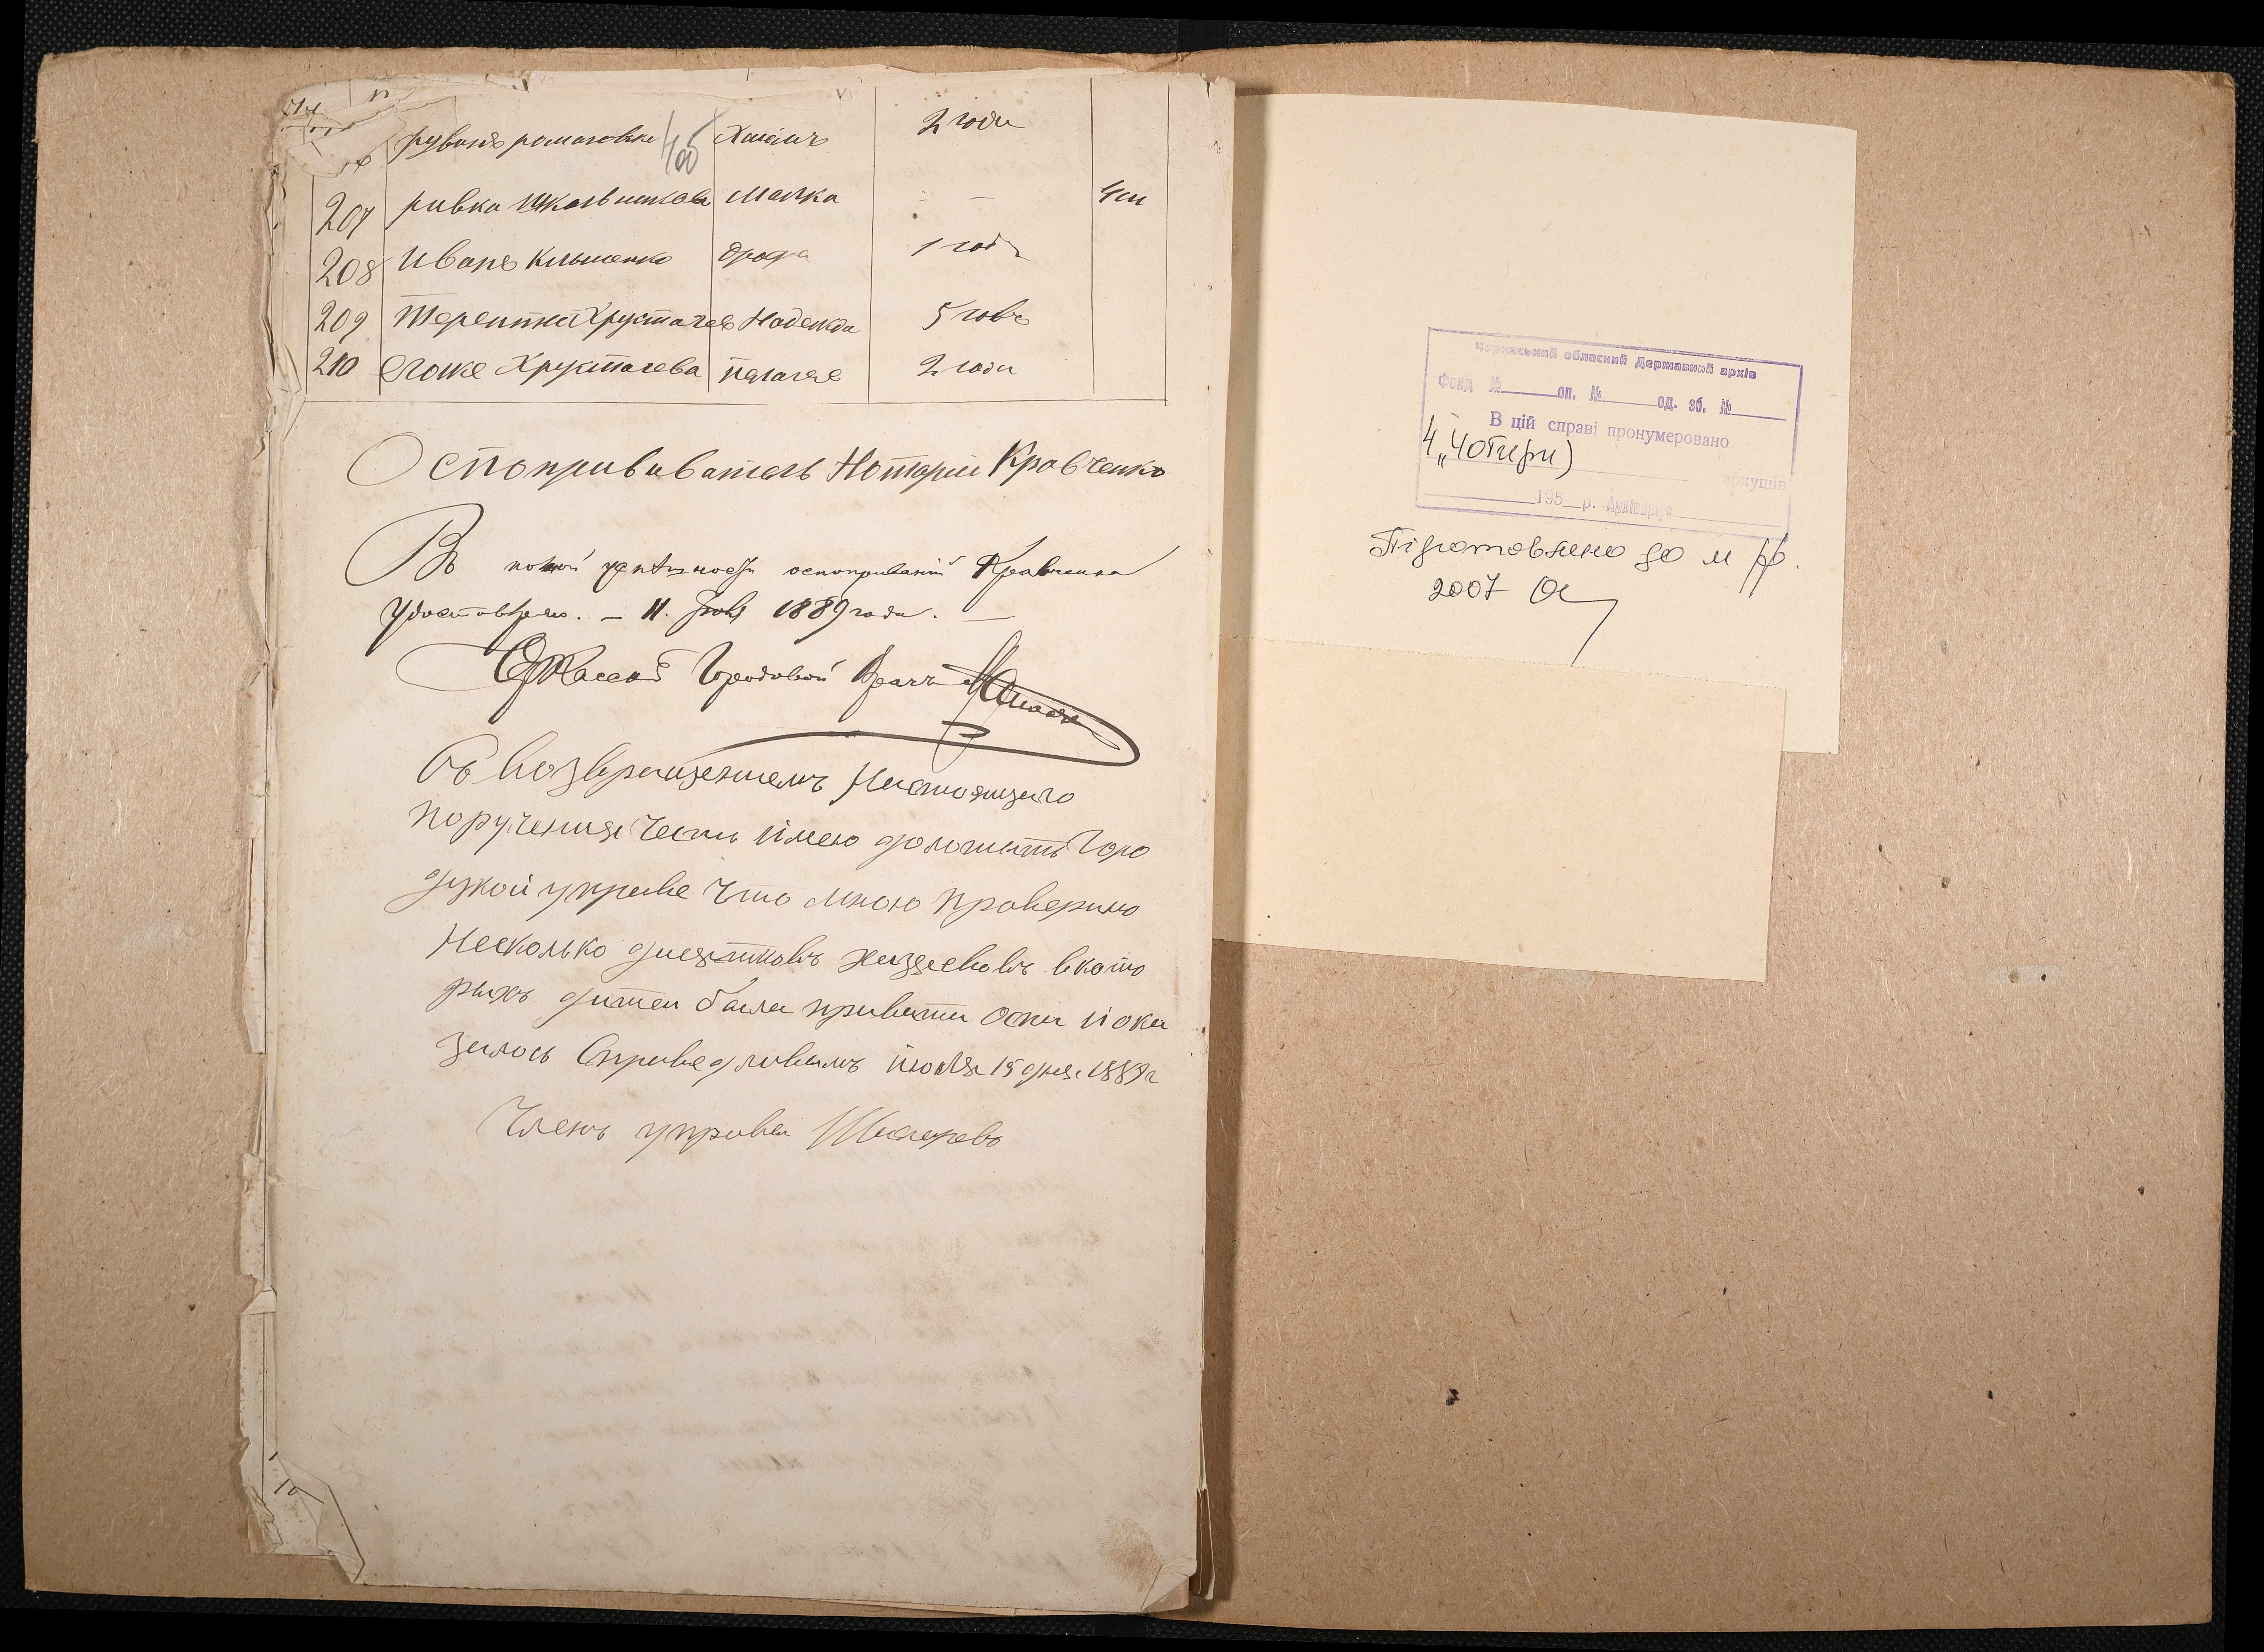 рувинъ романовъ Хаимъ 2 годи
207 ривка Школьникова Малка - - 4 м
208 Иванъ Клименко 1 годъ
209 Терентий Хрусталевъ Надежда 5 говъ
210 Хрусталева пелагея 2 годи
Оспопрививатель Нотарии Кравченко
Въ полной оспопрививаний Кравченка
Удостоверяю. – 11. 1889 года. –
Черкасский Городовой Врачъ
Съ возвращениемъ Настоящаго
поручения честь имею доложить Горо
дской управе что мною проверино
Несколько дисятковъ хазяевовъ вкото
рыхъ дитеи била привита оспа и ока
залось Справедливымъ июля 15 дня 1889 г
Членъ управи
Черкаський обласний Державний архів
Фонд № оп. № од. зб. №
В цій справі пронумеровано
4 „Чотири)
аркушів
195 р. Архіваріус
Підготовлено до м ф.
2007